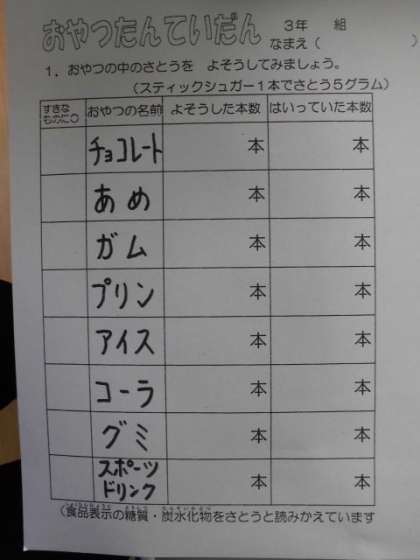 おやつたんていだん
3年 組
なまえ( )
1．おやつの中のさとうを よそうしてみましょう。
(スティックシュガー1本でさとう5グラム)
すきなものに○ おやつの名前 よそうした本数 はいっていた本数
チョコレート 本 本
あめ 本 本
ガム 本 本
プリン 本 本
アイス 本 本
コーラ 本 本
グミ 本 本
スポーツ
ドリンク 本 本
(食品表示の糖質・炭水化物をさとうと読みかえています